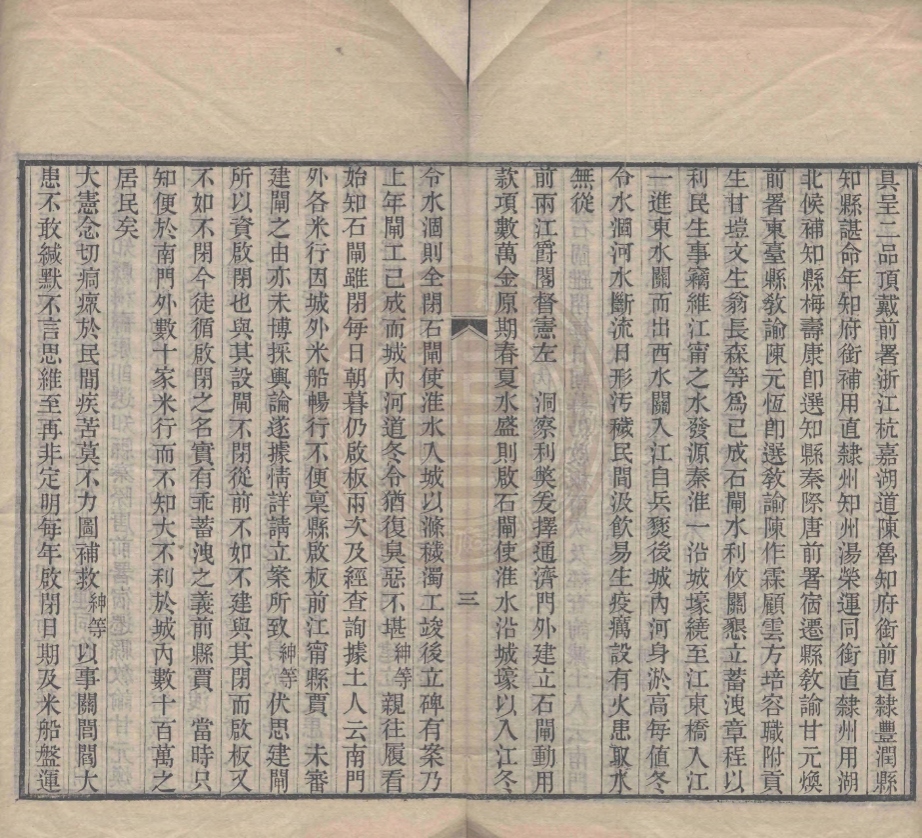 具呈二品頂戴前署浙江杭嘉湖道陳魯知府銜前直隸豐潤縣
知縣諶命年知府銜補用直隸州知州湯榮運同銜直隸州用湖
北候補知縣梅壽康卽選知縣秦際唐前署宿遷縣敎諭甘元煥
前署東臺縣敎諭陳元恆卽選敎諭陳作霖顧雲方培容職附貢
生甘塏文生翁長森等爲已成石閘水利攸關懇立蓄洩章程以
利民生事竊維江甯之水發源秦淮一沿城壕繞至江東橋入江
一進東水關而出西水關入江自兵燹後城內河身淤高每値冬
令水涸河水斷流日形汚穢民間汲飮易生疫癘設有火患取水
無從
前兩江爵閣督憲左 洞察利獘爰擇通濟門外建立石閘動用
款項數萬金原期春夏水盛則啟石閘使淮水沿城壕以入江冬
三
令水涸則全閉石閘使淮水入城以滌穢濁工竣後立碑有案乃
上年閘工已成而城內河道冬令猶復臭惡不堪紳等親往履看
始知石閘雖閉每日朝暮仍啟板兩次及經查詢據土人云南門
外各米行因城外米船暢行不便稟縣啟板前江甯縣賈 未審
建閘之由亦未博採輿論遂據情詳請立案所致紳等伏思建閘
所以資啟閉也與其設閘不閉從前不如不建與其閉而啟板又
不如不閉今徒循啟閉之名實有乖蓄洩之義前縣賈 當時只
知便於南門外數十家米行而不知大不利於城內數十百萬之
居民矣
大憲念切痌瘝於民間疾苦莫不力圖補救紳等以事關閭閻大
患不敢緘默不言思維至再非定明每年啟閉日期及米船盤運